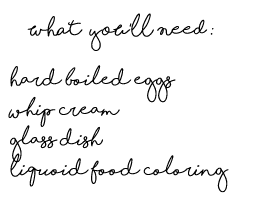 what you'll need:
hard boiled eggs
whip cream
glass dish
liquoid food coloring